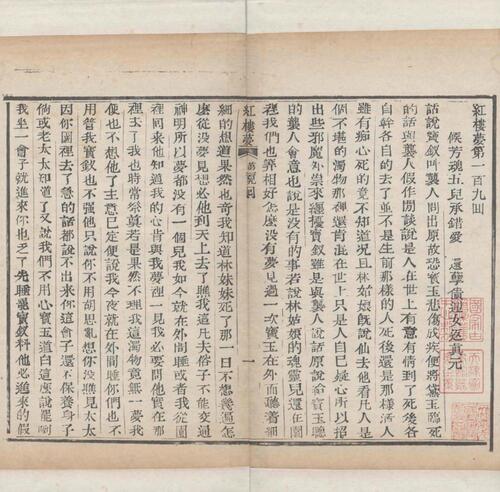 紅樓夢第一百九回
候芳魂五兒承錯愛 還孽債迎女返真元
話說寶釵叫襲人問出原故恐寶玉悲傷成疾便將黛玉臨死
的話與襲人假作閒談說是人在世上有意有情到了死後各
自幹各自的去了並不是生前那樣的人死後還是那樣活人
雖有痴心死的竟不知道況且林姑娘既說仙去他看凡人是
個不堪的濁物那裡還肯混在世上只是人自己疑心所以招
出些邪魔外祟來纏擾寶釵雖是與襲人說話原說給寶玉聽
的襲人會意也說是沒有的事若說林姑娘的魂靈兒還在園
裡我們也算相好怎麼沒有夢見過一次寶玉在外面聽着細
紅樓夢 第一百九回 一
細的想道果然也奇我知道林妹妹死了那一日不想幾遍怎
麼從沒夢見想必他到天上去了瞧我這凡夫俗子不能交通
神明所以夢都沒有一個兒我如今就在外間睡或者我從園
裡回來他知道我的心肯與我夢裡一見我必要問他實在那
裡去了我也時常祭奠若是果然不理我這濁物竟無一夢我
便也不想他了主意已定便說我今夜就在外間睡你們也不
用管我寶釵也不強他只說你不用胡思亂想你沒瞧見太太
因你園裡去了急的話都說不出來你這會子還不保養身子
倘或老太太知道了又說我們不用心寶玉道白這麼說罷咧
我坐一會子就進來你也乏了先睡罷寶釵料他必進來的假